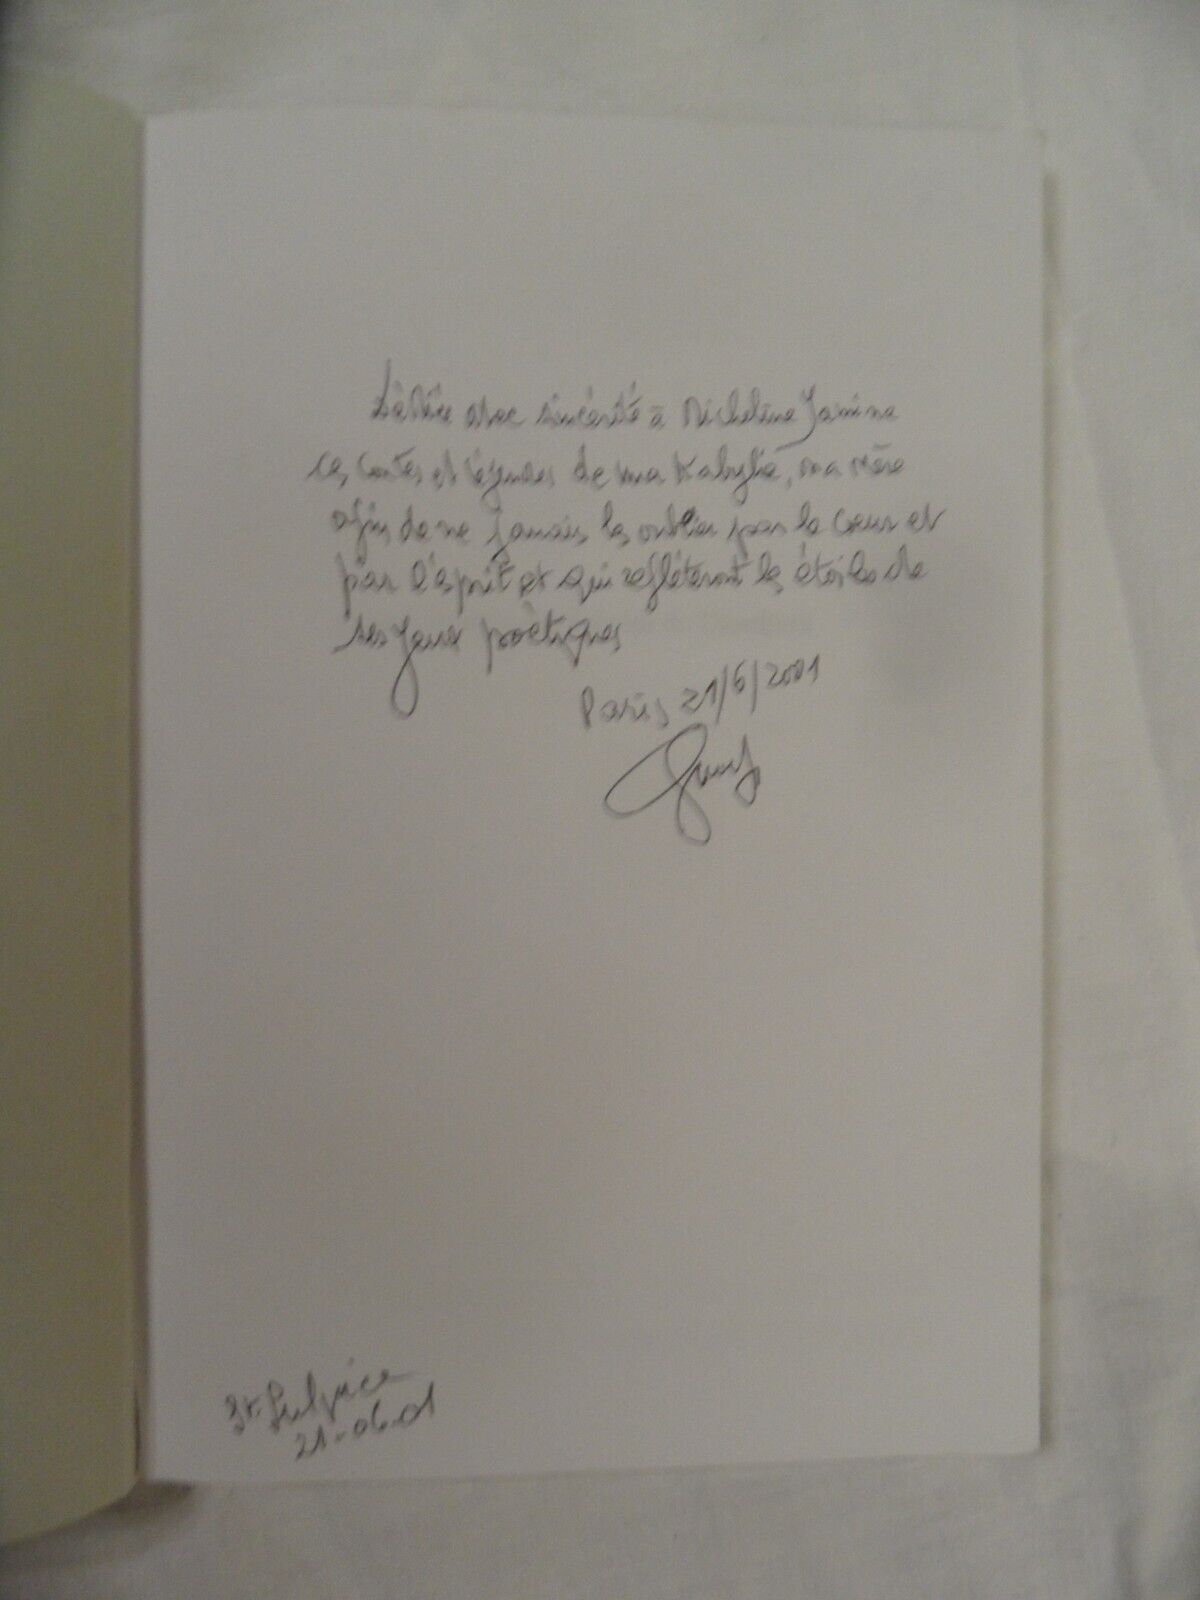 Dédicée avec sincérité à Micheline Janine
ces contes et légendes de ma Kabylie, ma mère
afin de ne jamais les oublier par le cœur et
par l'esprit et qui reflèteront les étoiles de
ses yeux poètiques
Paris 21/6/2001
St. Sulpice
21-06-01